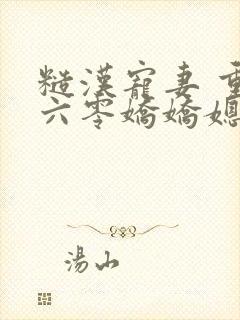 糙漢寵妻 重
六零嬌嬌媳
湯山